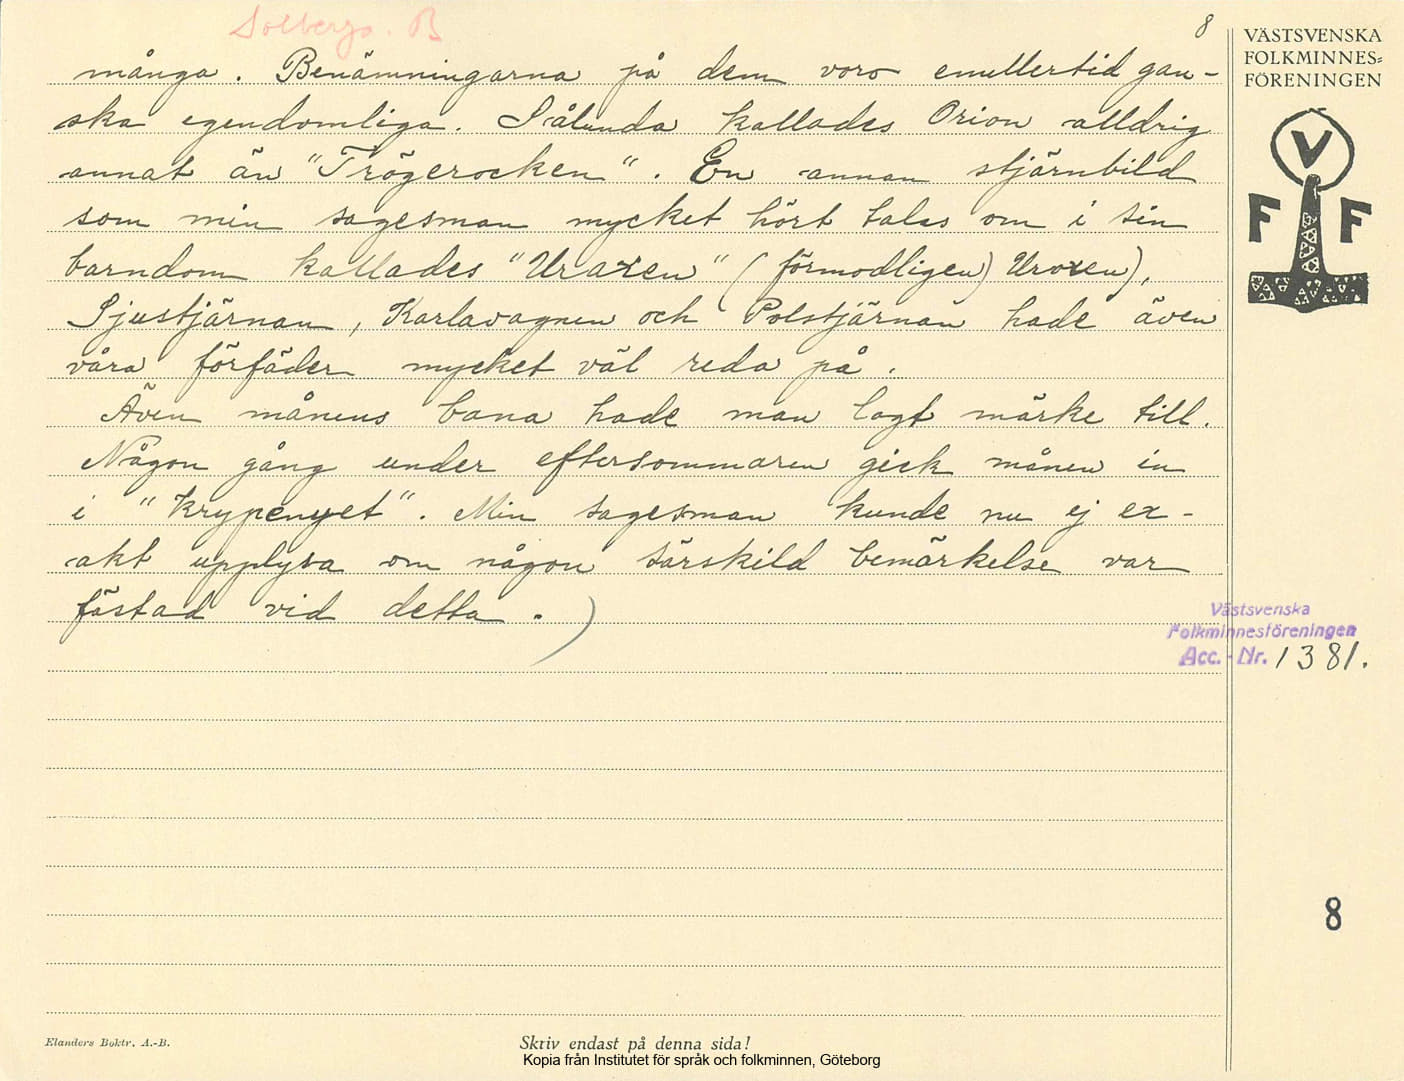 Solberga. B
8
VÄSTSVENSKA
FOLKMINNES=
FÖRENINGEN
många. Benämningarna på dem voro emellertid gan-
ska egendomliga. Sålunda kallades Orion alldrig
annat än "Trögerocken". En annan stjärnbild
som min sagesman mycket hört talas om i sin
barndom kallades "Uraxen" (förmodligen) Uroxen),
Sjustjärnan, Karlavagnen och Polstjärnan hade även
våra förfäder mycket väl reda på.
Även månens bana hade man lagt märke till.
Någon gång under eftersommaren gick månen in
i "Krypenyet". Min sagesman kunde nu ej ex-
akt upplysa om någon särskild bemärkelse var
fästad vid detta.)
V
F F
Västsvenska
Folkminnesföreningen
Acc.-Nr. 1381.
8
Elanders Boktr. A.-B.
Skriv endast på denna sida!
Kopia från Institutet för språk och folkminnen, Göteborg